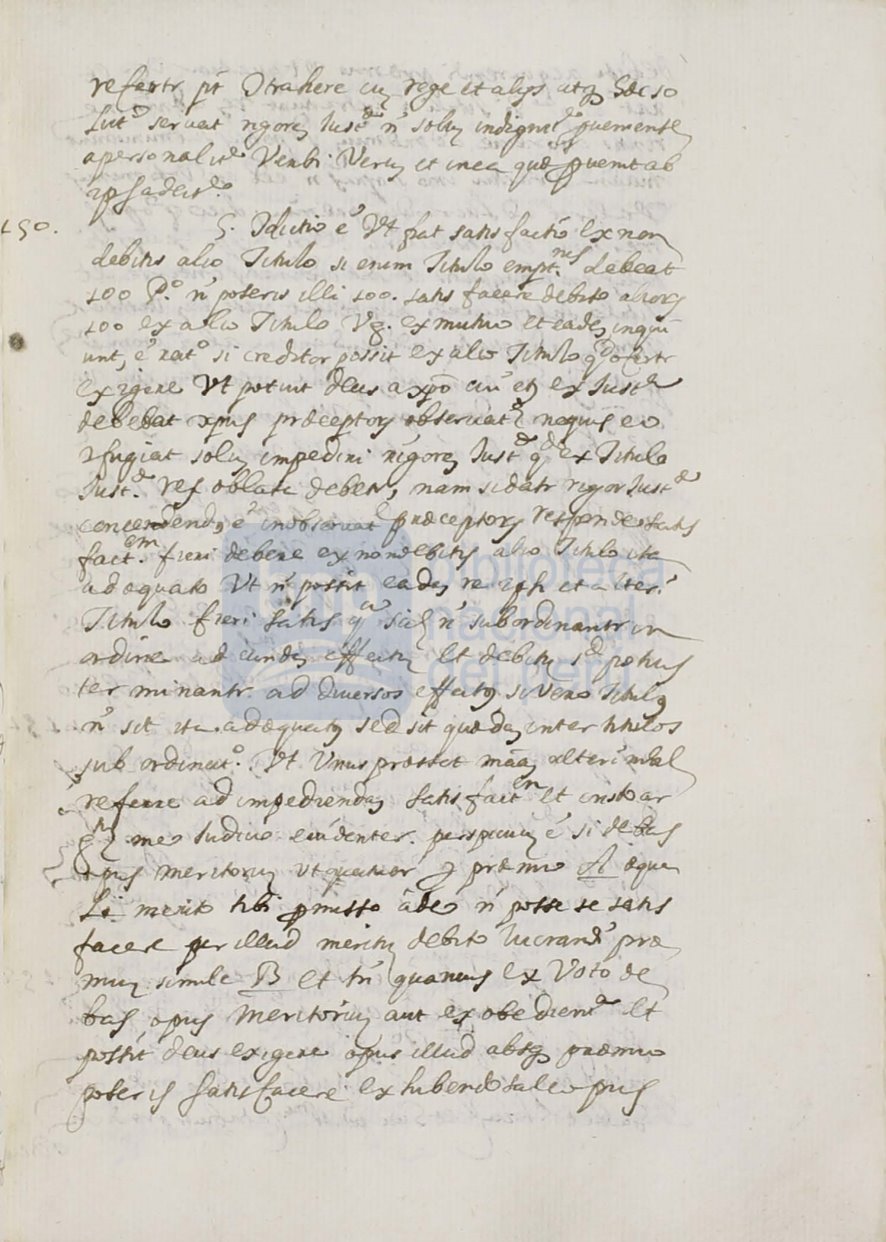 refertr pōt Ↄtrahere cu rege et alijs atq hæc so
lutᵒ servat rigorē Justᵃ n̄ solu indignitᵉ proueniente
a personalitᵉ Verbi Veru et in ea quæ prouenit ab
ipsa deitᵉ
150.
5. Ↄdictio ē Vt fiat satisfactio ex non
debitis alio Titulo si enim Titulo emptⁿⁱˢ debeat
100 Pᵒ n̄ poteris illi 100. satisfacere debito alior
100 ex alio Titulo Vg. ex mutuo et eadē inqui
unt, ē ratᵒ si creditor possit ex alio Titulo
exigere Vt potuit Deus a xpō cū et ex Justᵃ
debebat xpus præceptor observatᵉ neq eo
Ↄfugiat solu impediri rigorē Justᵃ qᵈᵒ ex Titulo
Justᵃ res oblata debetr, nam si datr rigor Justᵃ
concedendᵒ ē in observatᵉ præceptor respondeo satis
factᵉᵐ. fieri debere ex non debitis alio Titulo ita
adæquato Vt n̄ possit eadē re ipsi et alteri
Titulo fieri satis qᵃ sicut n̄ subordinantr in
ordine ad eundē effectu et debitu sᵈ potius
terminantr ad diversos effectus si vero Titulus
n̄ sit ita adæquatus sed sit quædā inter titulos
subordinatᵒ. Vt Unus præsset alteri
referre ad impediendā satisfactᵉⁿ et instar
meo Judicio euidenter. perspicuu ē si debas
opus meritoriu Vt quatuor p præmio A æqua
li merito tibi pmisso adeo n̄ posse se satis
facere per illud meritu debito lucrandi præ
miu simile B et tn̄ quamuis ex Voto de
bas opus meritoriu aut ex obedientᵃ et
possit Deus exigere opus illud absq præmio
poteris satisfacere exhibendo tale opus